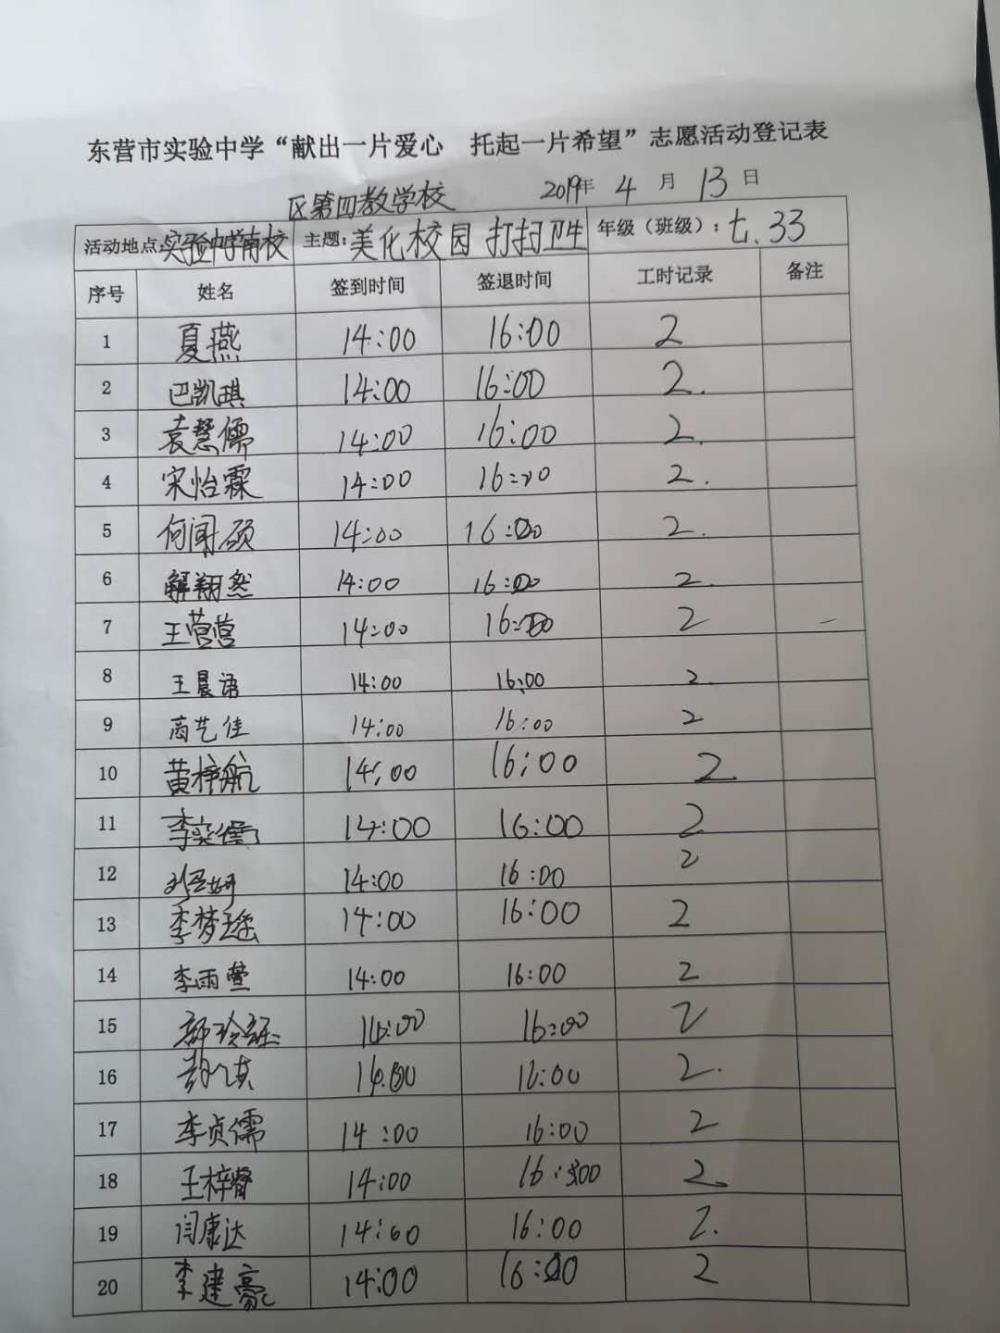 东营市实验中学“献出一片爱心 托起一片希望”志愿活动登记表
2019年 4 月 13 日
区第四教学校
活动地点:实验中学南校 主题:美化校园 打扫卫生 年级（班级）:七.33
序号 姓名 签到时间 签退时间 工时记录 备注
1 夏燕 14:00 16:00 2
2 巴凯琪 14:00 16:00 2.
3 袁慧儒 14:00 16:00 2.
4 宋怡霖 14:00 16:00 2.
5 何闻硕 14:00 16:00 2.
6 解翔然 14:00 16:00 2.
7 王营营 14:00 16:00 2
8 王晨语 14:00 16:00 2.
9 高艺佳 14:00 16:00 2
10 黄梓航 14:00 16:00 2.
11 李奕儒 14:00 16:00 2
12 14:00 16:00 2
13 李梦瑶 14:00 16:00 2
14 李雨莹 14:00 16:00 2
15 14:00 16:00 2
16 14:00 16:00 2.
17 李贞儒 14:00 16:00 2
18 王梓睿 14:00 16:00 2.
19 闫康达 14:00 16:00 2.
20 李建豪 14:00 16:00 2